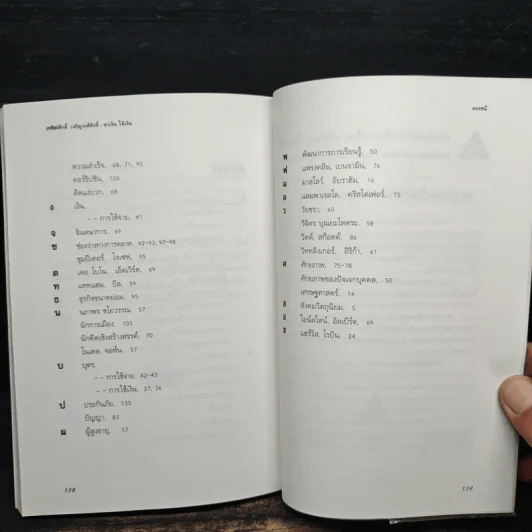 เจริญวงศ์ศักดิ์ : หาเงิน ใช้เงิน
ความสำเร็จ, 68, 71, 90
คอร์รัปชัน, 103
คิดแง่บวก, 68
ง เงิน,
-- การใช้จ่าย, 41
จ จินตนาการ, 69
ช ช่องว่างทางการตลาด, 92-93, 97-98
ชุมปีเตอร์, โจเซฟ, 95
ด เดอ โบโน, เอ็ดเวิร์ด, 69
ท แทททแฮม, บิล, 59
ธ ธุรกิจขนาดย่อม, 95
น นภาพร ชโยวรรณ, 57
นักการเมือง, 103
นักคิดเชิงสร้างสรรค์, 70
โนเดล, จอห์น, 57
บ บุตร,
-- การใช้จ่าย, 42-43
-- การใช้เงิน, 27, 36
ป ประกันภัย, 135
ปัญญา, 83
ผ ผู้สูงอายุ, 57
138
ดรรชนี
พ พัฒนาการการเรียนรู้, 50
ฟ แฟรงคลิน, เบนจามิน, 76
ม มาสโลว์, อับราฮัม, 16
ล แลมพาเรลโล, คริสโตเฟอร์, 75
ว วัยชรา, 60
วิจิตร บุณยะโหตระ, 58
วิตต์, สก็อตต์, 86
วิททลิงเกอร์, อิริก้า, 61
ศ ศักยภาพ, 75-78
ศักยภาพของปัจเจกบุคคล, 50
เศรษฐศาสตร์, 14
ส สังคมวัตถุนิยม, 5
อ ไอน์สไตน์, อัลเบิร์ต, 69
ฮ แฮร์ริส, โรบิน, 24
139